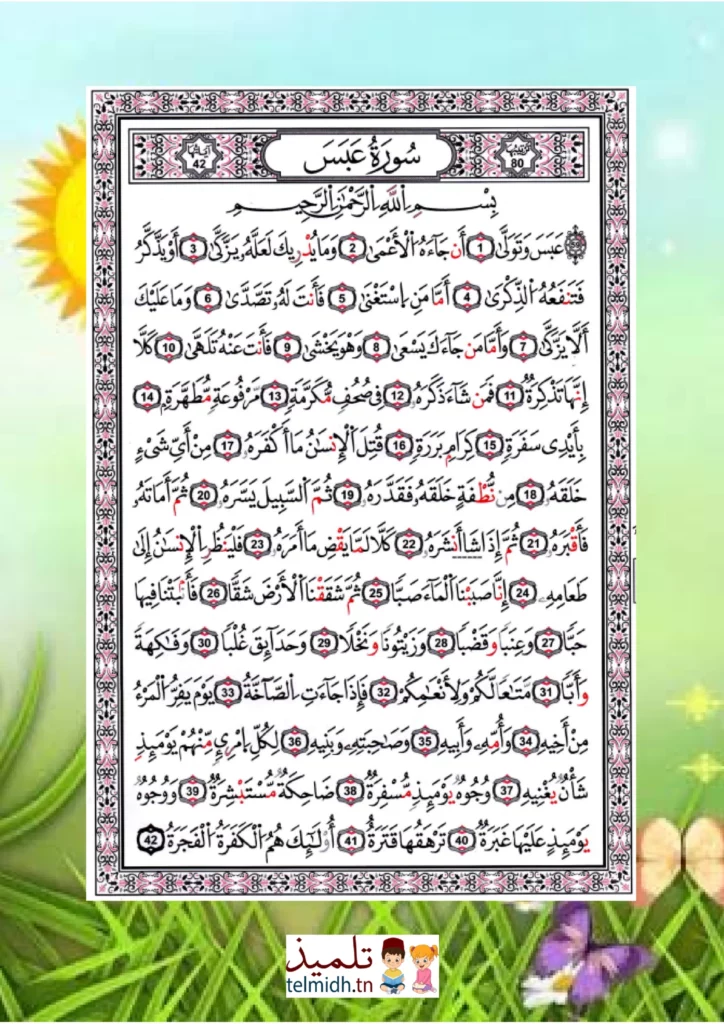 ترتيبها 80
سُورَةُ عَبَسَ
آياتها 42
بِسْمِ اِ۬للَّهِ اِ۬لرَّحْمَٰنِ اِ۬لرَّحِيمِ
عَبَسَ وَتَوَلَّىٰ 1 أَن جَآءَهُ اُ۬لْأَعْمَىٰ 2 وَمَا يُدْرِيكَ لَعَلَّهُۥ يَزَّكَّىٰ 3 أَوْ يَذَّكَّرُ
فَتَنفَعُهُ اُ۬لذِّكْرَىٰ 4 أَمَّا مَنِ اِ۪سْتَغْنَىٰ 5 فَأَنتَ لَهُۥ تَصَّدَّىٰ 6 وَمَا عَلَيْكَ
أَلَّا يَزَّكَّىٰ 7 وَأَمَّا مَن جَآءَكَ يَسْعَىٰ 8 وَهُوَ يَخْشَىٰ 9 فَأَنتَ عَنْهُ تَلَهَّىٰ 10 كَلَّآ
إِنَّهَا تَذْكِرَةٌ 11 فَمَن شَآءَ ذَكَرَهُۥ 12 فِے صُحُفٍ مُّكَرَّمَةٍ 13 مَّرْفُوعَةٍ مُّطَهَّرَةٍ 14
بِأَيْدِے سَفَرَةٍ 15 كِرَامٍ بَرَرَةٍ 16 قُتِلَ اَ۬لْإِنسَٰنُ مَآ أَكْفَرَهُۥ 17 مِنْ أَيِّ شَےْءٍ
خَلَقَهُۥ 18 مِن نُّطْفَةٍ خَلَقَهُۥ فَقَدَّرَهُۥ 19 ثُمَّ اَ۬لسَّبِيلَ يَسَّرَهُۥ 20 ثُمَّ أَمَاتَهُۥ
فَأَقْبَرَهُۥ 21 ثُمَّ إِذَا شَآ أَنشَرَهُۥ 22 كَلَّا لَمَّا يَقْضِ مَآ أَمَرَهُۥ 23 فَلْيَنظُرِ اِ۬لْإِنسَٰنُ إِلَىٰ
طَعَامِهِۦ 24 إِنَّا صَبَبْنَا اَ۬لْمَآءَ صَبّاٗ 25 ثُمَّ شَقَقْنَا اَ۬لْأَرْضَ شَقّاٗ 26 فَأَنۢبَتْنَا فِيهَا
حَبّاٗ 27 وَعِنَباٗ وَقَضْباٗ 28 وَزَيْتُوناٗ وَنَخْلاٗ 29 وَحَدَآئِقَ غُلْباٗ 30 وَفَٰكِهَةٗ
وَأَبّاٗ 31 مَّتَٰعاٗ لَّكُمْ وَلِأَنْعَٰمِكُمْ 32 فَإِذَا جَآءَتِ اِ۬لصَّآخَّةُ 33 يَوْمَ يَفِرُّ اُ۬لْمَرْءُ
مِنْ أَخِيهِ 34 وَأُمِّهِۦ وَأَبِيهِ 35 وَصَٰحِبَتِهِۦ وَبَنِيهِ 36 لِكُلِّ اِ۪مْرِےٕٖ مِّنْهُمْ يَوْمَئِذٖ
شَأْنٞ يُغْنِيهِ 37 وُجُوهٞ يَوْمَئِذٖ مُّسْفِرَةٞ 38 ضَاحِكَةٞ مُّسْتَبْشِرَةٞ 39 وَوُجُوهٞ
يَوْمَئِذٍ عَلَيْهَا غَبَرَةٞ 40 تَرْهَقُهَا قَتَرَةٌ 41 أُوْلَٰٓئِكَ هُمُ اُ۬لْكَفَرَةُ اُ۬لْفَجَرَةُ 42
تلميذ
telmidh.tn